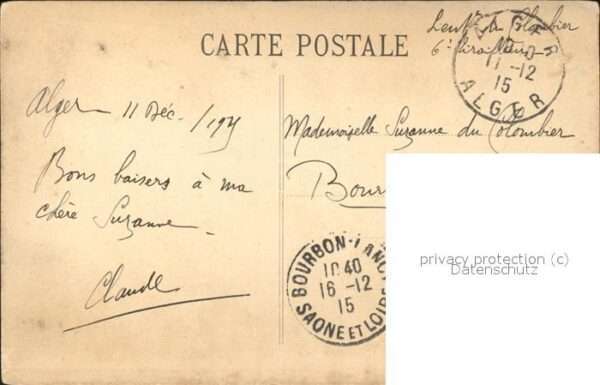 CARTE POSTALE
Lieut de Colombier
6e Tirailleurs
11-12
15
ALGER
Alger 11 Déc. /1915
Bons baisers à ma
chère Suzanne
Claude
Mademoiselle Suzanne du Colombier
Bour
BOURBON-LANC
10 40
16-12
15
SAONE ET LOIRE
privacy protection (c)
Datenschutz